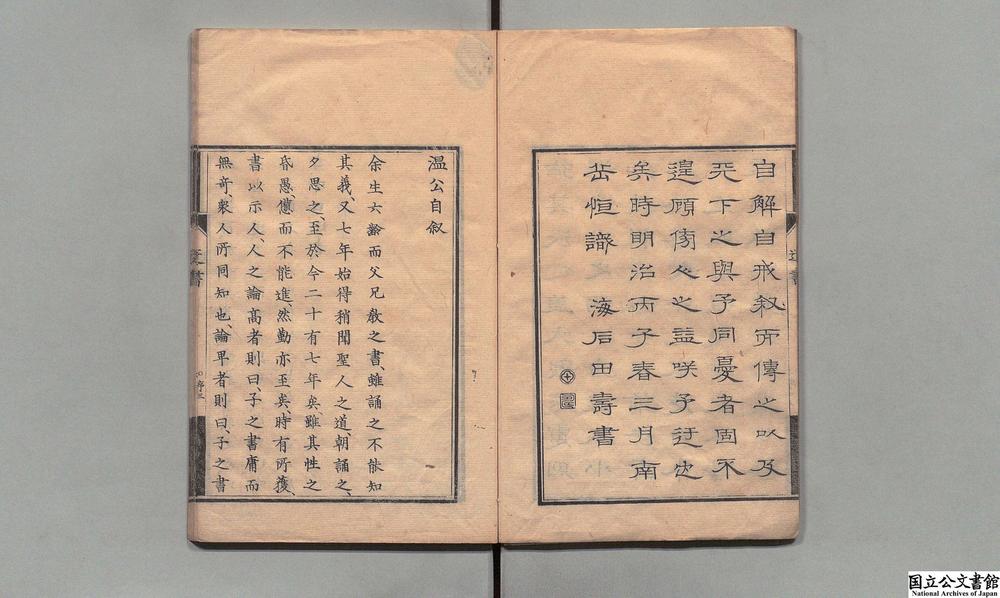 自解自戒叙而傳之以及
天下之與予同憂者固不
遑顧傍人之益咲予迂也
矣時明治丙子春三月南
岳恒識　海石田壽書
温公自叙
余生六齡而父兄敎之書、雖誦之不能知
其義、又七年始得稍聞聖人之道、朝誦之、
夕思之、至於今二十有七年矣、雖其性之
昏愚、憊而不能進、然勤亦至矣、時有所獲、
書以示人、人之論髙者則曰、子之書庸而
無奇、衆人所同知也、論卑者則曰、子之書
国立公文書館
National Archives of Japan